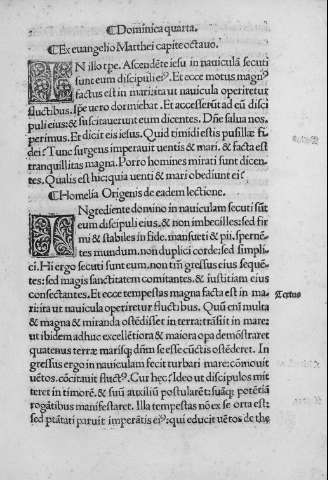 ¶Dominica quarta.
¶Ex euangelio Matthei capite octauo.
IN illo tpe. Ascendēte iesu in nauiculā secuti
sunt eum discipuli eiꝰ. Et ecce motus magnꝰ
factus est in mari: ita ut nauicula operiretur
fluctibus. Ipse vero dormiebat. Et accesserūt ad eū disci
puli eius: & suscitauerunt eum dicentes. Dñe salua nos,
perimus. Et dicit eis iesus. Quid timidi estis pusillæ fi-
dei? Tunc surgens imperauit ventis & mari. & facta est
tranquillitas magna. Porro homines mirati sunt dicen-
tes. Qualis est hic: quia venti & mari obediunt ei?
¶Homelia Origenis de eadem lectione.
INgrediente domino in nauiculam secuti sūt
eum discipuli eius, & non imbecilles: sed fir
mi & stabiles in fide. mansueti & pii. spernē-
tes mundum. non duplici corde: sed simpli-
ci. Hi ergo secuti sunt eum. non tm̄ gressus eius sequē-
tes: sed magis sanctitatem comitantes. & iustitiam eius
consectantes. Et ecce tempestas magna facta est in ma-
ri: ita ut nauicula operiretur fluctibus. Quū eni multa
& magna & miranda ostēdisset in terra: trāsiit in mare:
ut ibidem adhuc excellētiora & maiora opa demōstraret
quatenus terræ marisq; dn̄m se esse cūctis ostēderet. In
gressus ergo in nauiculam fecit turbari mare: cōmouit
vētos. cōcitauit fluctꝰ. Cur hęc? Ideo ut discipulos mit
teret in timorē. & suū auxiliū postularēt: suāq; potētiā
rogātibus manifestaret. Illa tempestas nō ex se orta est:
sed ptātati paruit imperātis eiꝰ: qui educit vētos de the
Textus